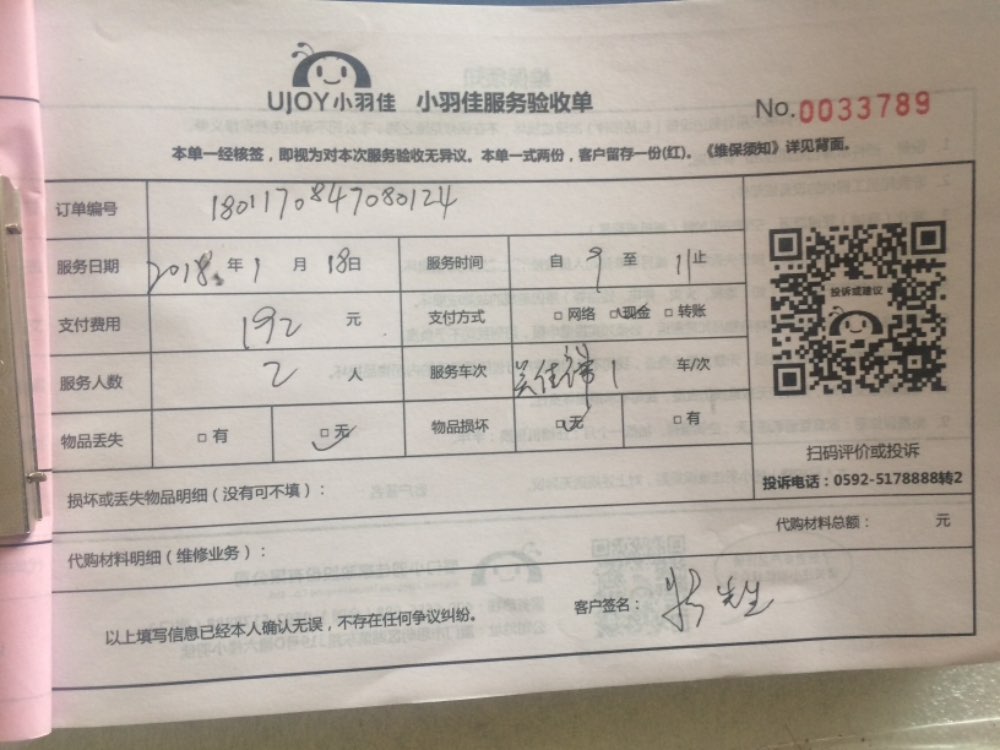 UJOY小羽佳 小羽佳服务验收单
No.0033789
本单一经核签，即视为对本次服务验收无异议。本单一式两份，客户留存一份(红)。《维保须知》详见背面。
订单编号 1801170847080124
服务日期 2018年1月18日 服务时间 自9至11止
支付费用 192元 支付方式 □网络 □现金 □转账
服务人数 2人 服务车次 1 车/次
物品丢失 □有 □无 物品损坏 □无 □有
投诉或建议
扫码评价或投诉
投诉电话：0592-5178888转2
损坏或丢失物品明细（没有可不填）：
代购材料总额： 元
代购材料明细（维修业务）：
以上填写信息已经本人确认无误，不存在任何争议纠纷。 客户签名： 先生